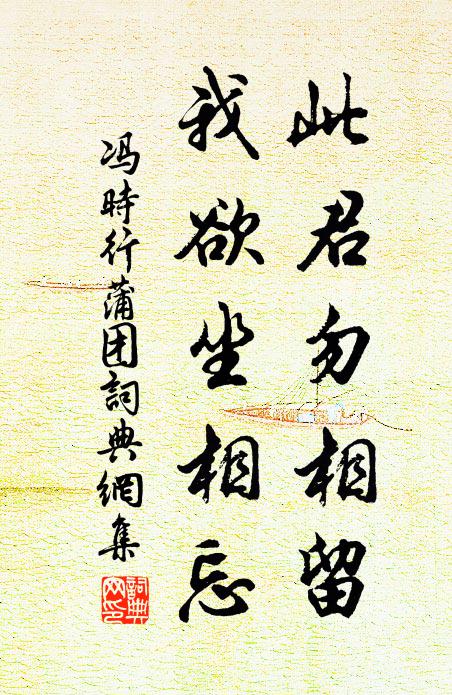 此君勿相留
我欲坐相忘
冯時行蒲团詞典網集
詞典
网印